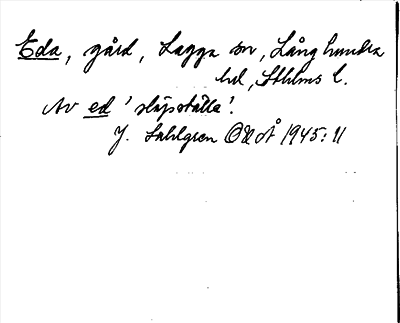 Eda, gård, Lagga sn, Långhundra
hd, Sthlms l.
Av ed 'släpställe'.
J. Sahlgren OUÅ 1945:11